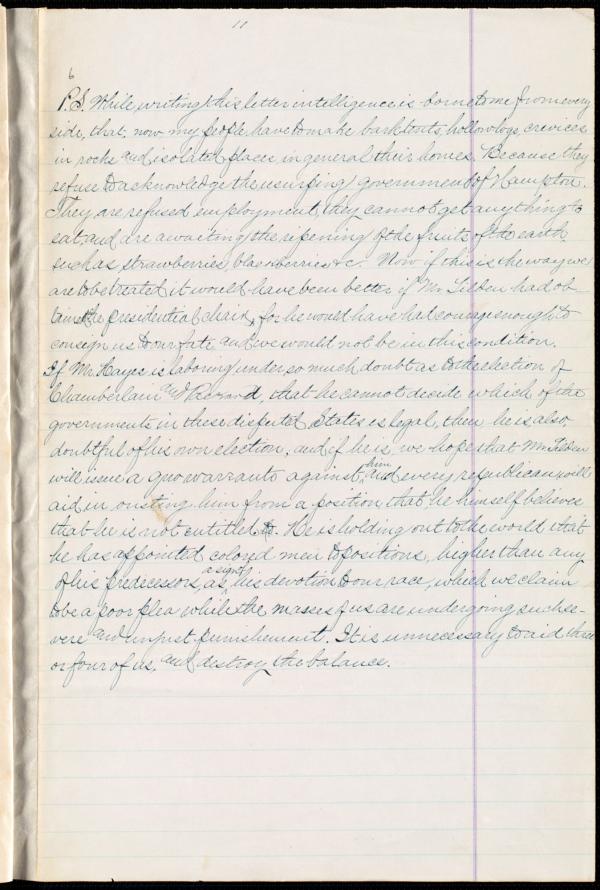 11
6
P.S. While writing this letter intelligence is borne to me from every
side, that, now my people have to make bark tents, hollow logs, crevices
in rocks and isolated places in general their homes. Because they
refuse to acknowledge the usurping government of Hampton.
They are refused employment, they cannot get anything to
eat, and are awaiting the ripening of the fruits of the earth
such as strawberries, blackberries &c. Now if this is the way we
are to be treated it would have been better if Mr Tilden had ob-
tained the presidential chair, for he would have had courage enough to
consign us to our fate and we would not be in this condition.
If Mr. Hayes is laboring under so much doubt as to the election of
Chamberlain and Packard, that he cannot decide which of the
governments in these disputed States is legal, then he is also,
doubtful of his own election, and if he is, we hope that Mr. Tilden
will issue a quo warranto against him and every republican will
aid in ousting him from a position that he himself believes
that he is not entitled to. He is holding out to the world that
he has appointed colored men to positions, higher than any
of his predecessors, as a sign of his devotion to our race, which we claim
to be a poor plea while the masses of us are undergoing such se-
vere and unjust punishement. It is unnecessary to aid three
or four of us, and destroy the balance.